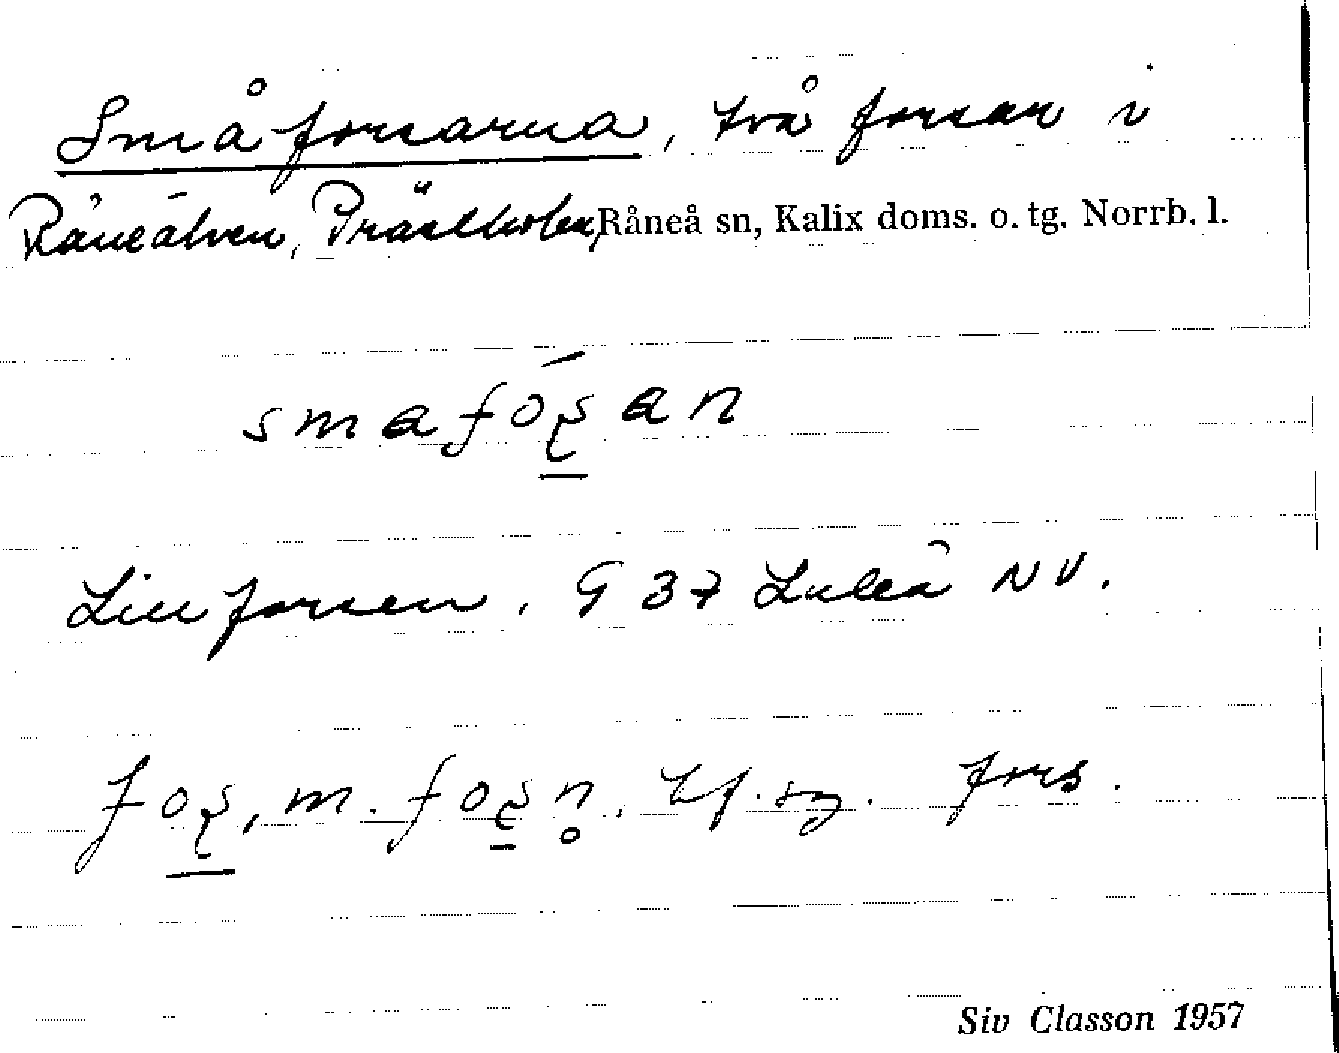 Småforsarna, två forsar i
Råneälven, Prästholm, Råneå sn, Kalix doms. o. tg. Norrb. l.
smafóʂan
Lillforsen. G 37 Luleå NV.
foʂ, m. foʂn̥. fors.
Siv Classon 1957